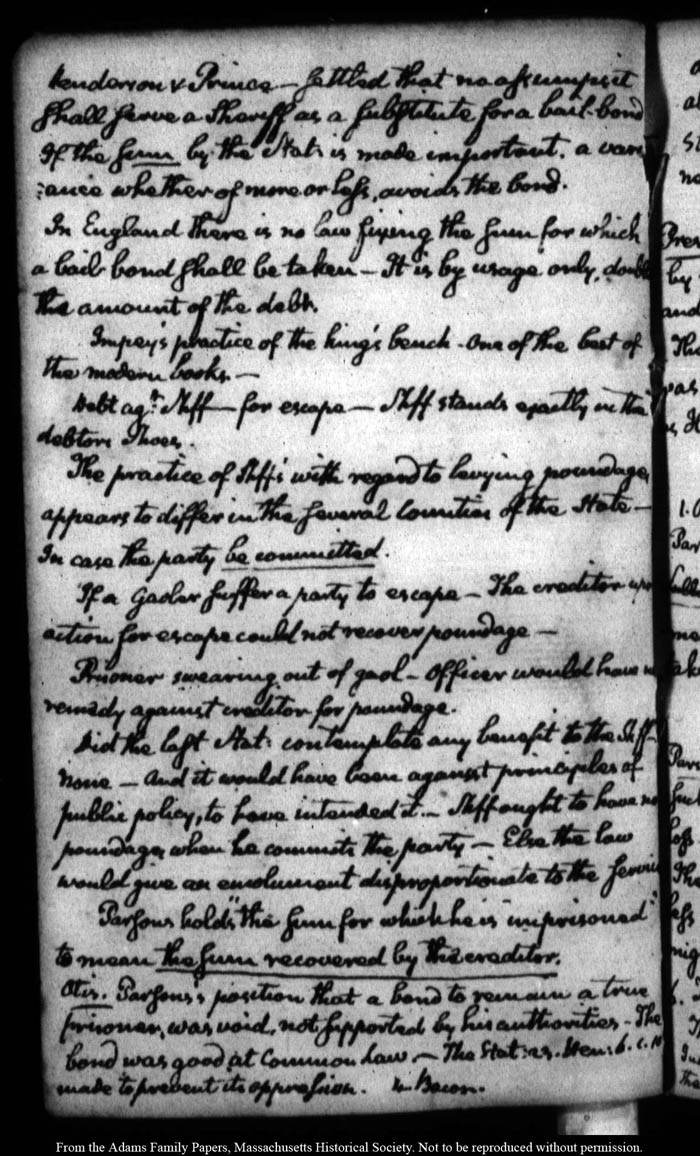 Henderson v Prince — Settled that no assumpsit
Shall serve a Sheriff as a substitute for a bail-bond
If the sum by the Stat: is made important. a vari
:ance whether of more or less, avoids the bond.
In England there is no law fixing the sum for which
a bail-bond shall be taken — It is by usage only, double
the amount of the debt.
Impey's practice of the king's bench. One of the best of
the modern books. —
Debt agt. Shff — for escape — Shff stands exactly in the
debtors Shoes.
The practice of Shffs with regard to levying poundage,
appears to differ in the several Counties of the State —
In case the party be committed.
If a Gaoler suffer a party to escape — The creditor upon
action for escape could not recover poundage —
Prisoner swearing out of gaol — Officer would have no
remedy against creditor for poundage.
Did the last Stat: contemplate any benefit to the Shff —
none — And it would have been against principles of
public policy, to have intended it. — Shff ought to have no
poundage, when he commits the party — Else the law
would give an emolument disproportionate to the service
Parsons holds "the sum for which he is imprisoned"
to mean the sum recovered by the creditor.
Otis. Parsons's position that a bond to remain a true
prisoner, was void, not supported by his authorities — The
bond was good at Common Law. — The Stat: 23. Hen: 6. c. 10
made to prevent its oppression. 4 Bacon.
From the Adams Family Papers, Massachusetts Historical Society. Not to be reproduced without permission.